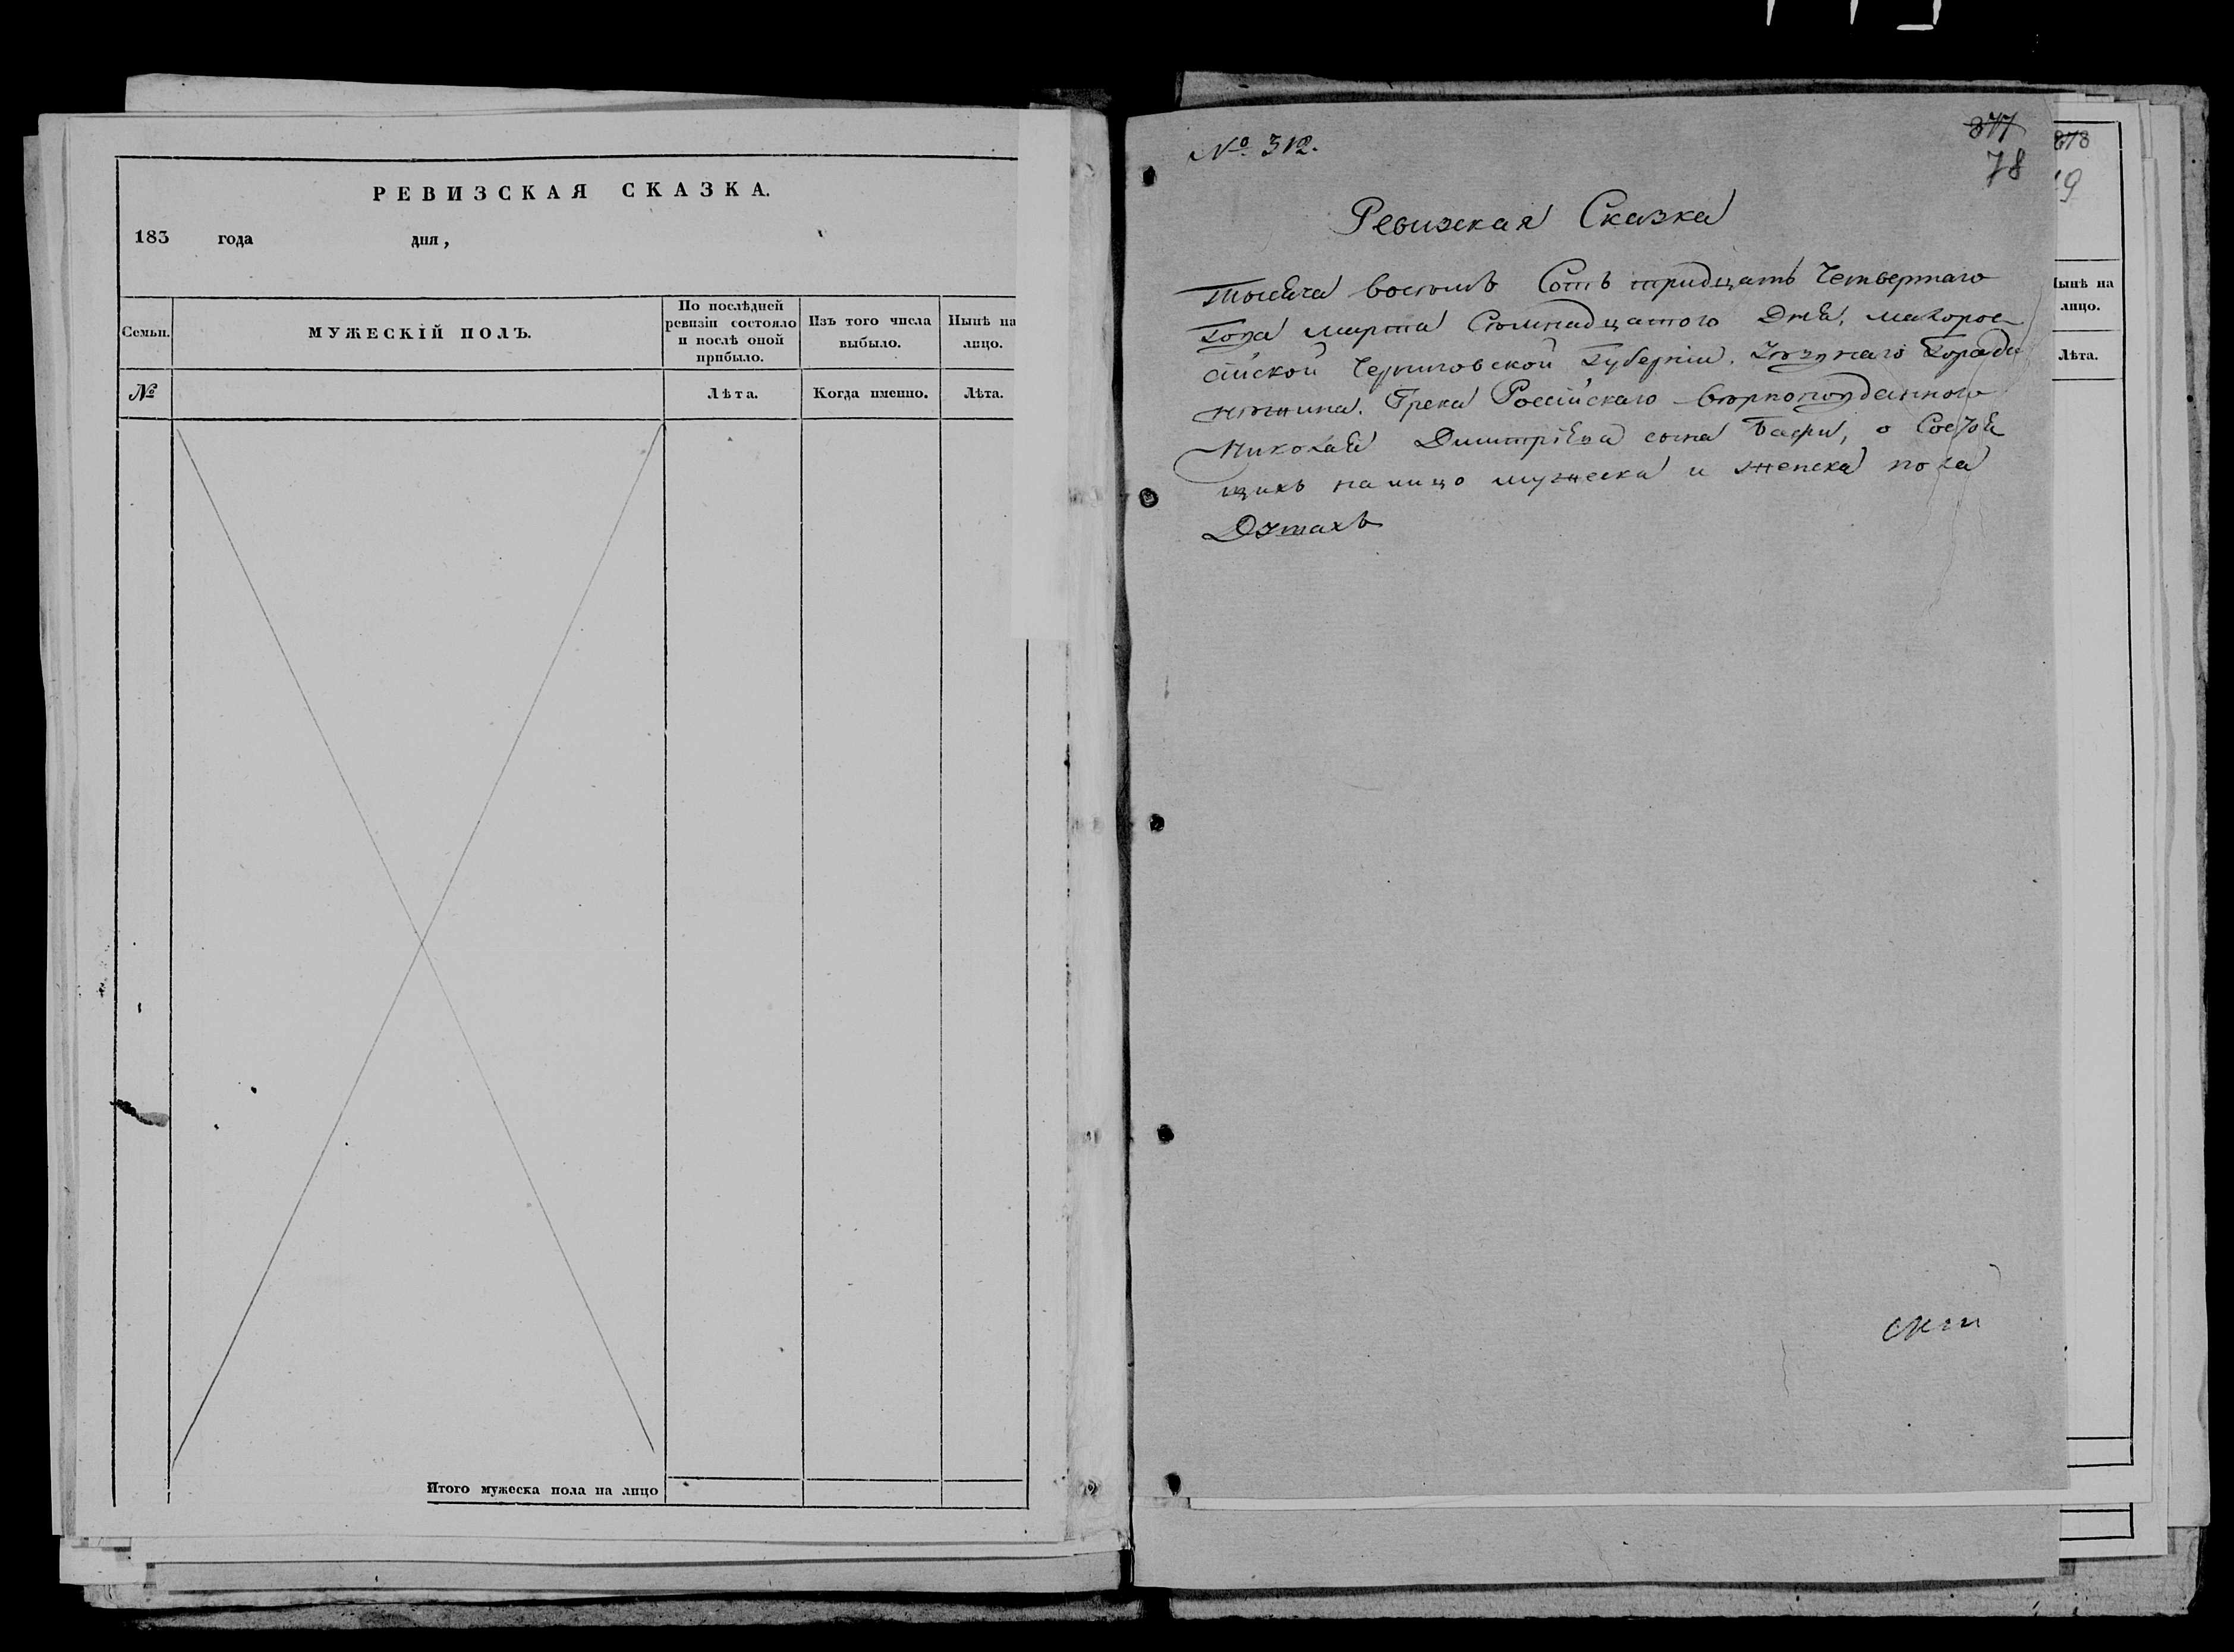 РЕВИЗСКАЯ СКАЗКА.
183 года дня,
Семьи.
МУЖЕСКІЙ ПОЛЪ.
По послѣдней
ревизіи состояло
и послѣ оной
прибыло.
Изъ того числа
выбыло.
Нынѣ на
лицо.
№
Лѣта.
Когда именно.
Лѣта.
Итого мужеска пола на лицо
№ 312.
377
78
Ревизская Сказка
Тысяча восемь Сотъ тридцать Четвертаго
Года марта Семнадцатого Дня, малорос-
сійской Черниговской Губерніи.
нежина. Грека Россійскаго вѣрноподданного
Николая Димитріева сына Бафи, о Состоя
щихъ налицо мужеска и женска пола
Душахъ
378
9
Нынѣ на
лицо.
Лѣта.